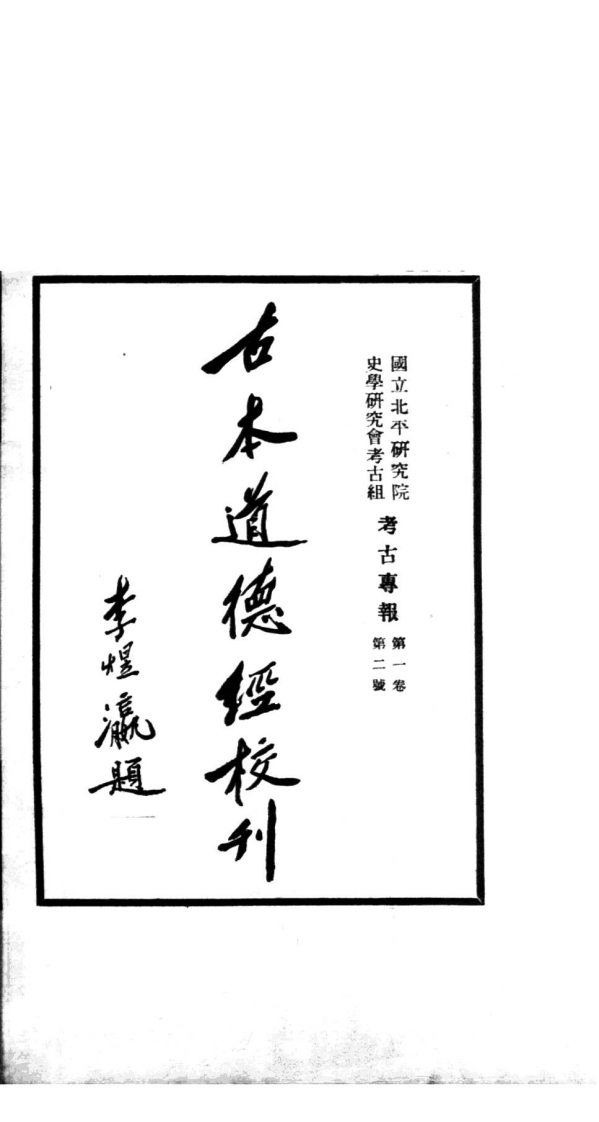 國立北平研究院
史學研究會考古組
考古專報
第一卷
第二號
古本道德經校刊
李煜瀛題